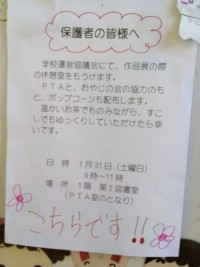 保護者の皆様へ
学校運営協議会にて、作品展の際
の休憩室をもうけます。
ＰＴＡと、おやじの会の協力のも
と、ポップコーンも配布します。
温かいお茶でものみながら、すこ
しでもゆっくりしていただけたら幸
いです。
日 時 １月３１日（土曜日）
９時～１１時
場 所 １階 第２図書室
（ＰＴＡ室のとなり）
こちらです!!